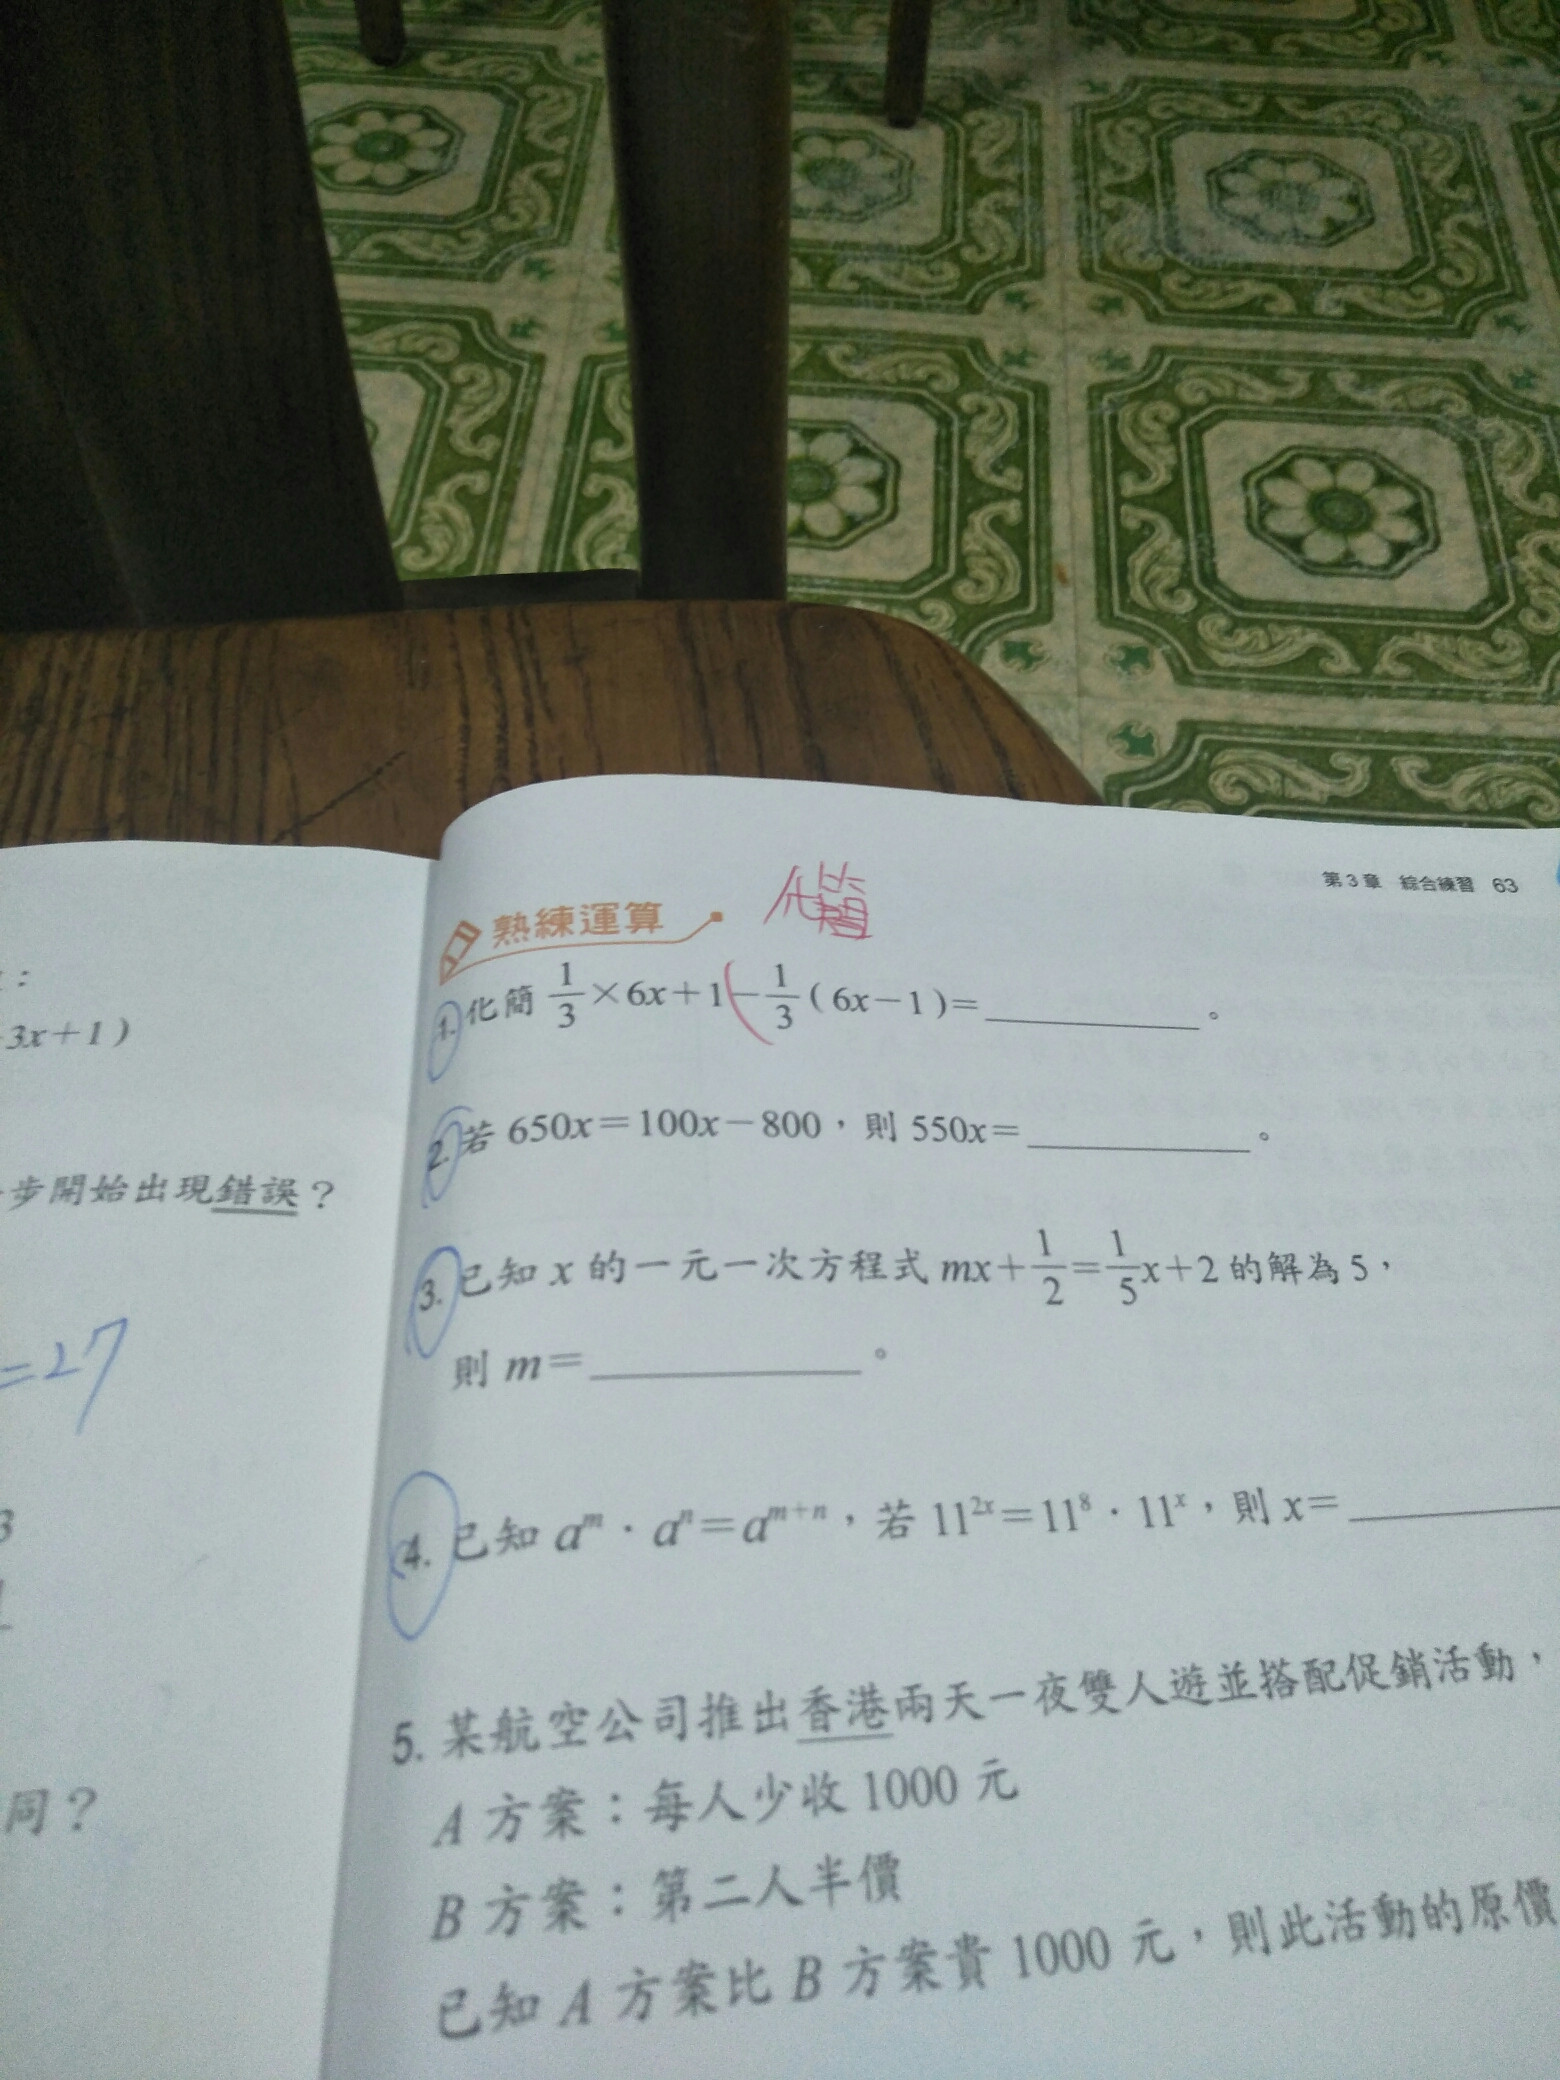 :
3x+1)
步開始出現錯誤?
=27
3
同?
第3章 綜合練習 63
熟練運算
化簡
1. 化簡 1/3×6x+1-1/3(6x-1)=________。
2. 若 650x=100x-800,則 550x=________。
3. 已知 x 的一元一次方程式 mx+1/2=1/5x+2 的解為 5,
則 m=________。
4. 已知 aᵐ·aⁿ=aᵐ⁺ⁿ,若 11²ˣ=11⁸·11ˣ,則 x=________
5. 某航空公司推出香港兩天一夜雙人遊並搭配促銷活動,
A 方案:每人少收 1000 元
B 方案:第二人半價
已知 A 方案比 B 方案貴 1000 元,則此活動的原價